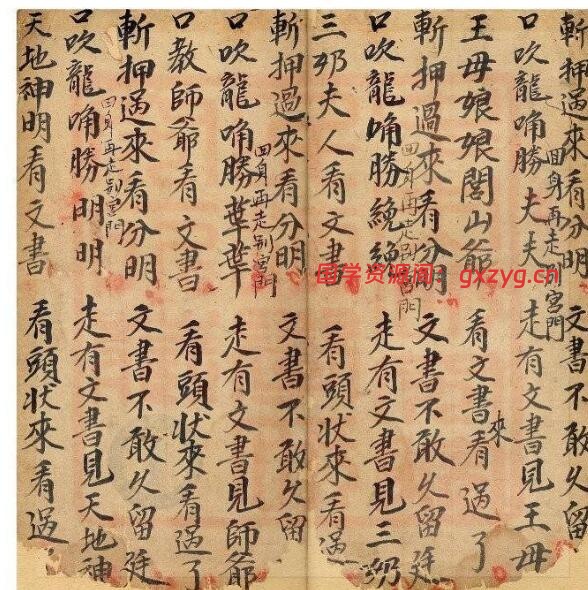 斬押過來看分明 文書不敢久留
口吹龍啼勝夫夫 走有文書見王母
回身再走别宮門
王母娘娘閭山爺 看文書來看過了
斬押過來看分明 文書不敢久留廷
回身再走别宮門
口吹龍啼勝絶絶 走有文書見三奶
三奶夫人看文書 看頭状來看過
斬押過來看分明 文書不敢久留
回身再走别宮門
口吹龍啼勝葉葉 走有文書見師爺
口教師爺看文書 看頭状來看過了
斬押過來看分明 文書不敢久留廷
回身再走别宮門
口吹龍啼勝明明 走有文書見天地神
天地神明看文書 看頭状來看過
国学资源网:gxzyg.cn